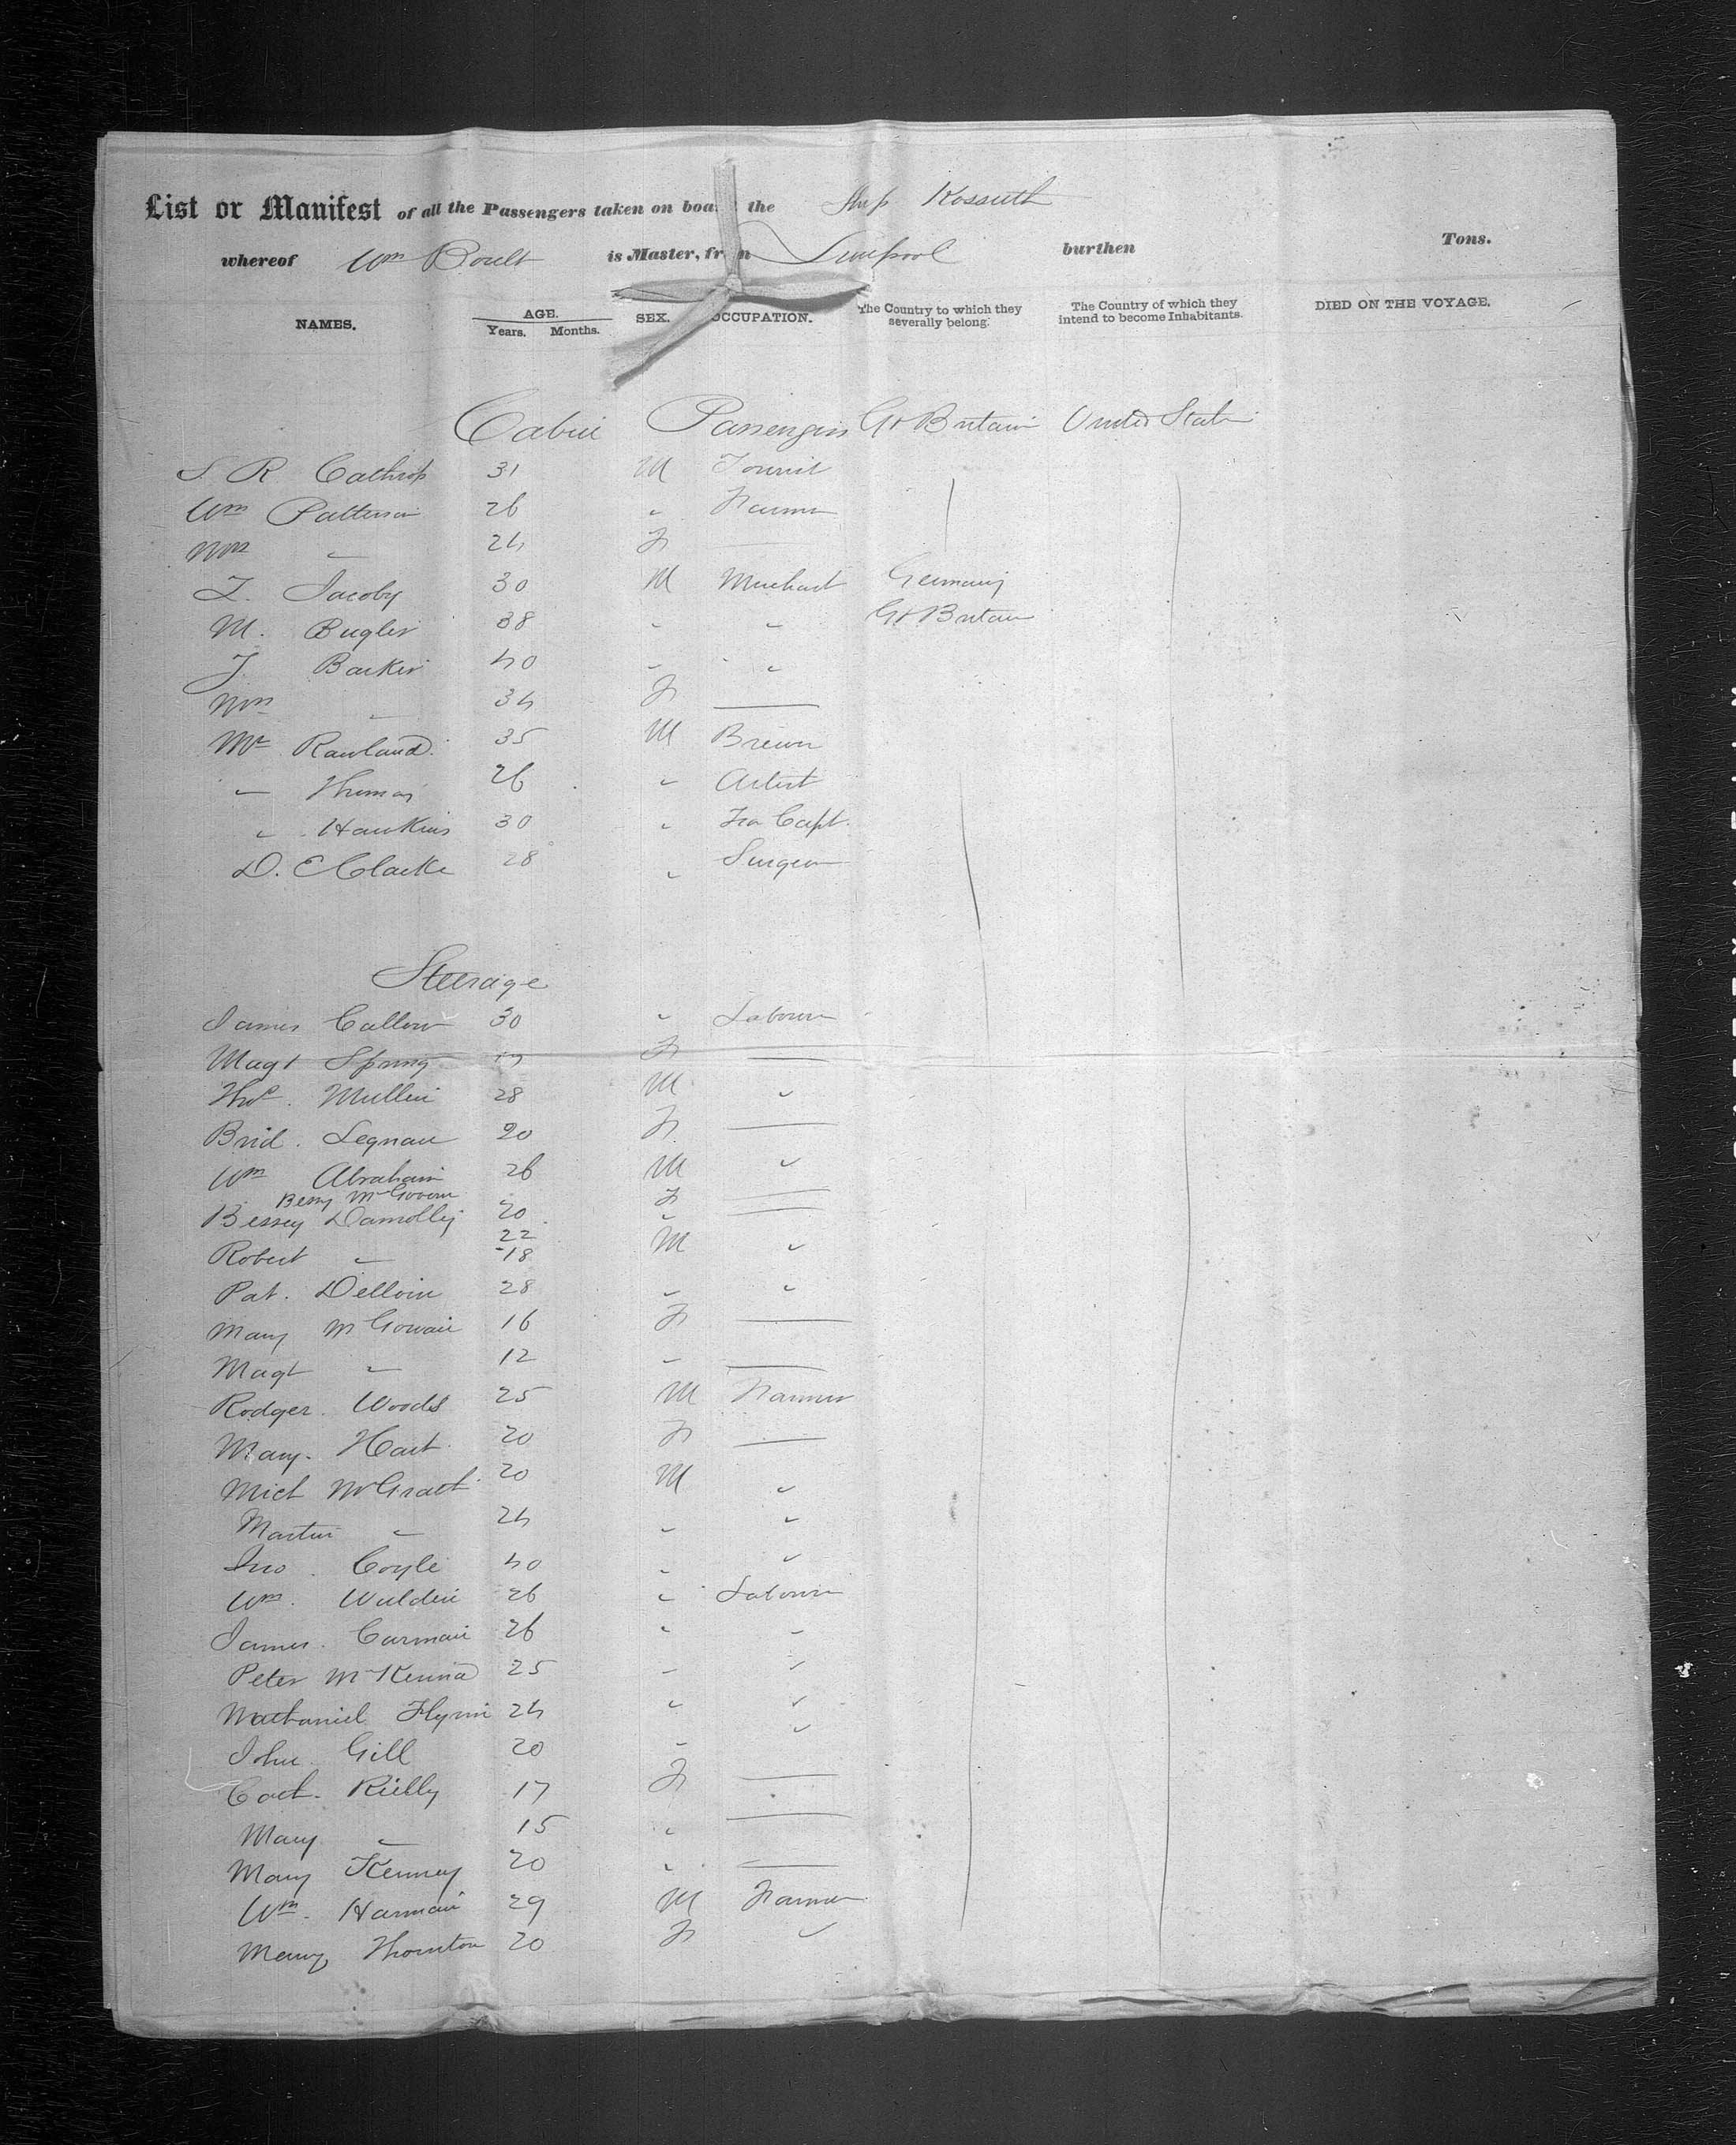 List or Manifest of all the Passengers taken on board the Ship Kossuth
whereof Wm Boult is Master, from Liverpool burthen Tons.
NAMES. AGE. Years. Months. SEX. OCCUPATION. The Country to which they severally belong. The Country of which they intend to become Inhabitants. DIED ON THE VOYAGE.
Cabin Passengers Gt Britain United States
S R Calthrop 31 M Tourist
Wm Patterson 26 " Farmer
Mrs " 24 F —
I. Jacoby 30 M Merchant Germany
M. Bugler 38 " " Gt Britain
J. Barker 40 " "
Mrs " 34 F —
Mr Rowland 35 M Brewer
" Thomas 26 " Artist
" Hawkins 30 " Capt.
D. E Clarke 28 " Surgeon
Steerage
James Callow 30 " Labourer
Magt Spring F —
Thos. Mullin 28 M "
Brid. Legnan 20 F —
Wm Abraham 26 M "
Bessy McGovern F —
Bessey 20 " —
Robert " 22 18 M "
Pat. 28 " "
Mary McGowan 16 F —
Magt " 12 " —
Rodger Woods 25 M Farmer
Mary Hart 20 F —
Mich McGrath 20 M "
Martin " 24 " "
Jno. Coyle 40 " "
Wm. 26 " Labourer
James. Carman 26 " "
Peter McKenna 25 " "
Nathaniel Flynn 24 " "
John Gill 20 " "
Cath. Rielly 17 F —
Mary " 15 " —
Mary Kenney 20 " —
Wm. Harman 29 M Farmer
Mary Thornton 20 F "